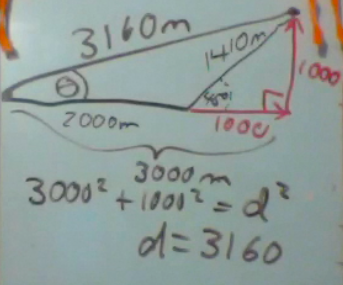 3160m
1410m
θ
45°
1000
2000m
1000
3000m
3000² + 1000² = d²
d = 3160